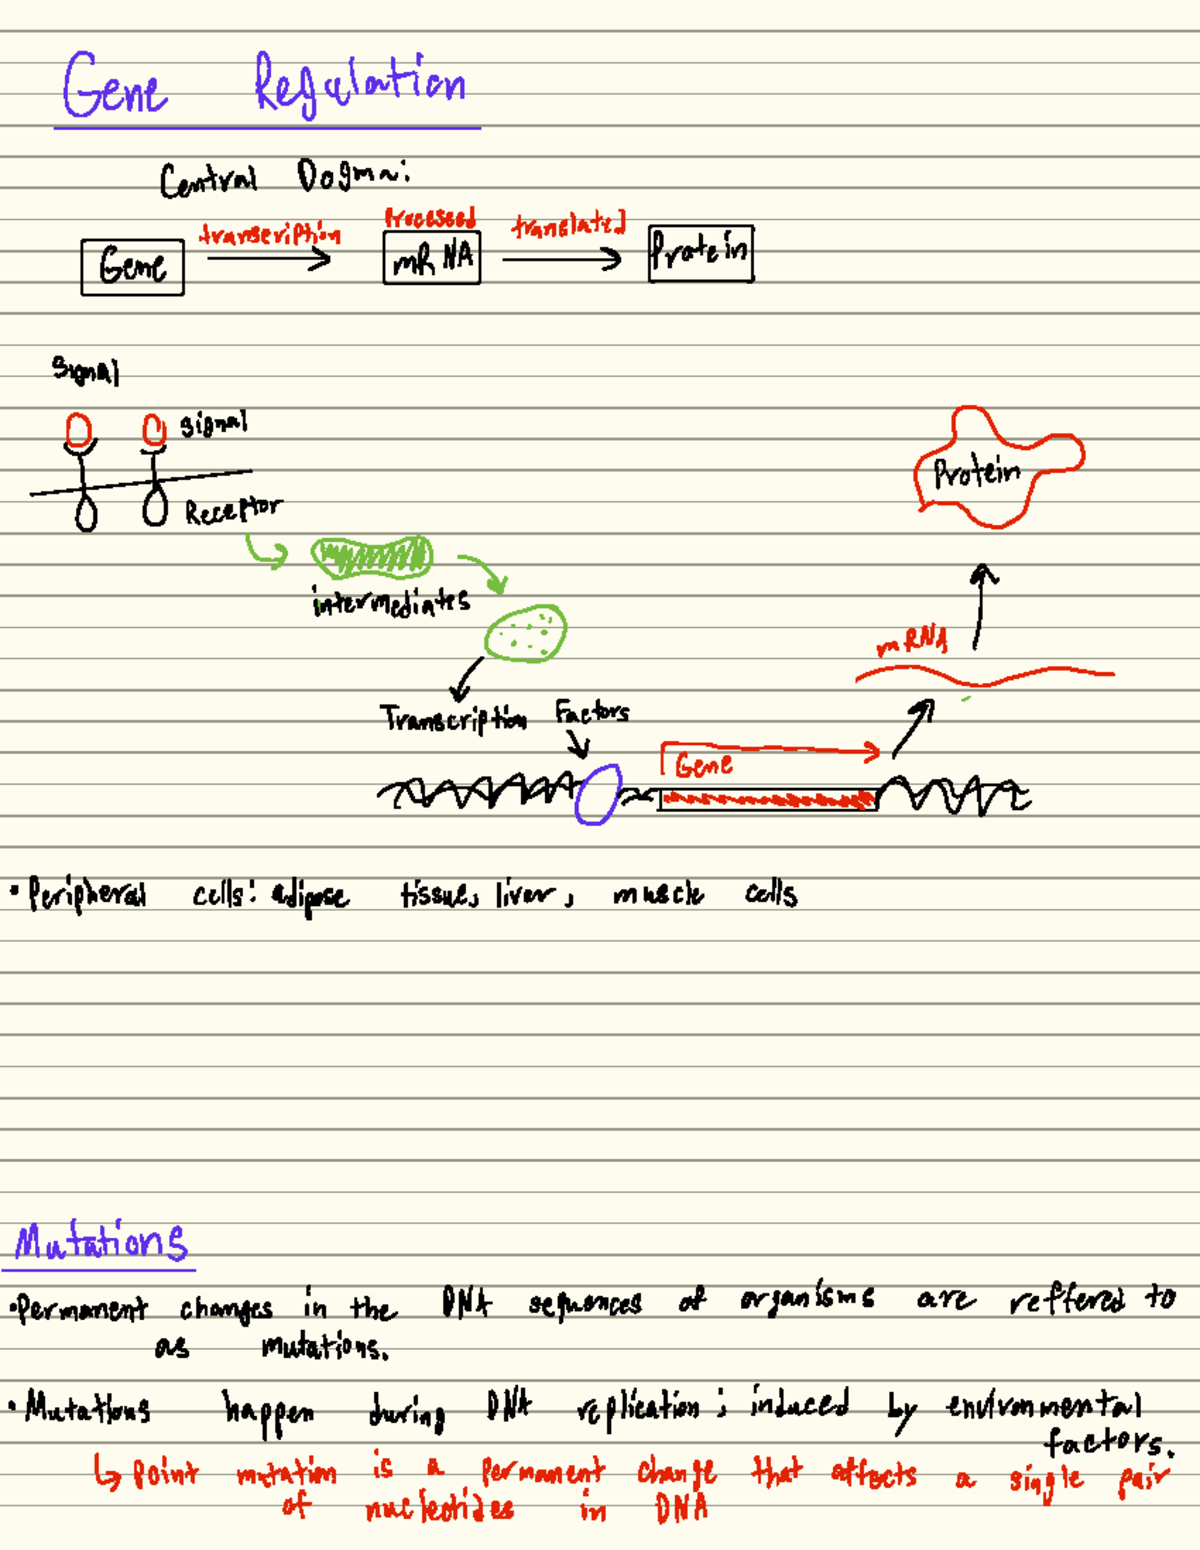 Gene Regulation
Central Dogma:
Gene transcription Processed mRNA translated Protein
Signal
signal
Receptor
Protein
intermediates
mRNA
Transcription Factors
Gene
• Peripheral cells: adipose tissue, liver, muscle cells
Mutations
• Permanent changes in the DNA sequences of organisms are reffered to
as mutations.
• Mutations happen during DNA replication; induced by environmental
factors.
↳ point mutation is a permanent change that affects a single pair
of nucleotides in DNA